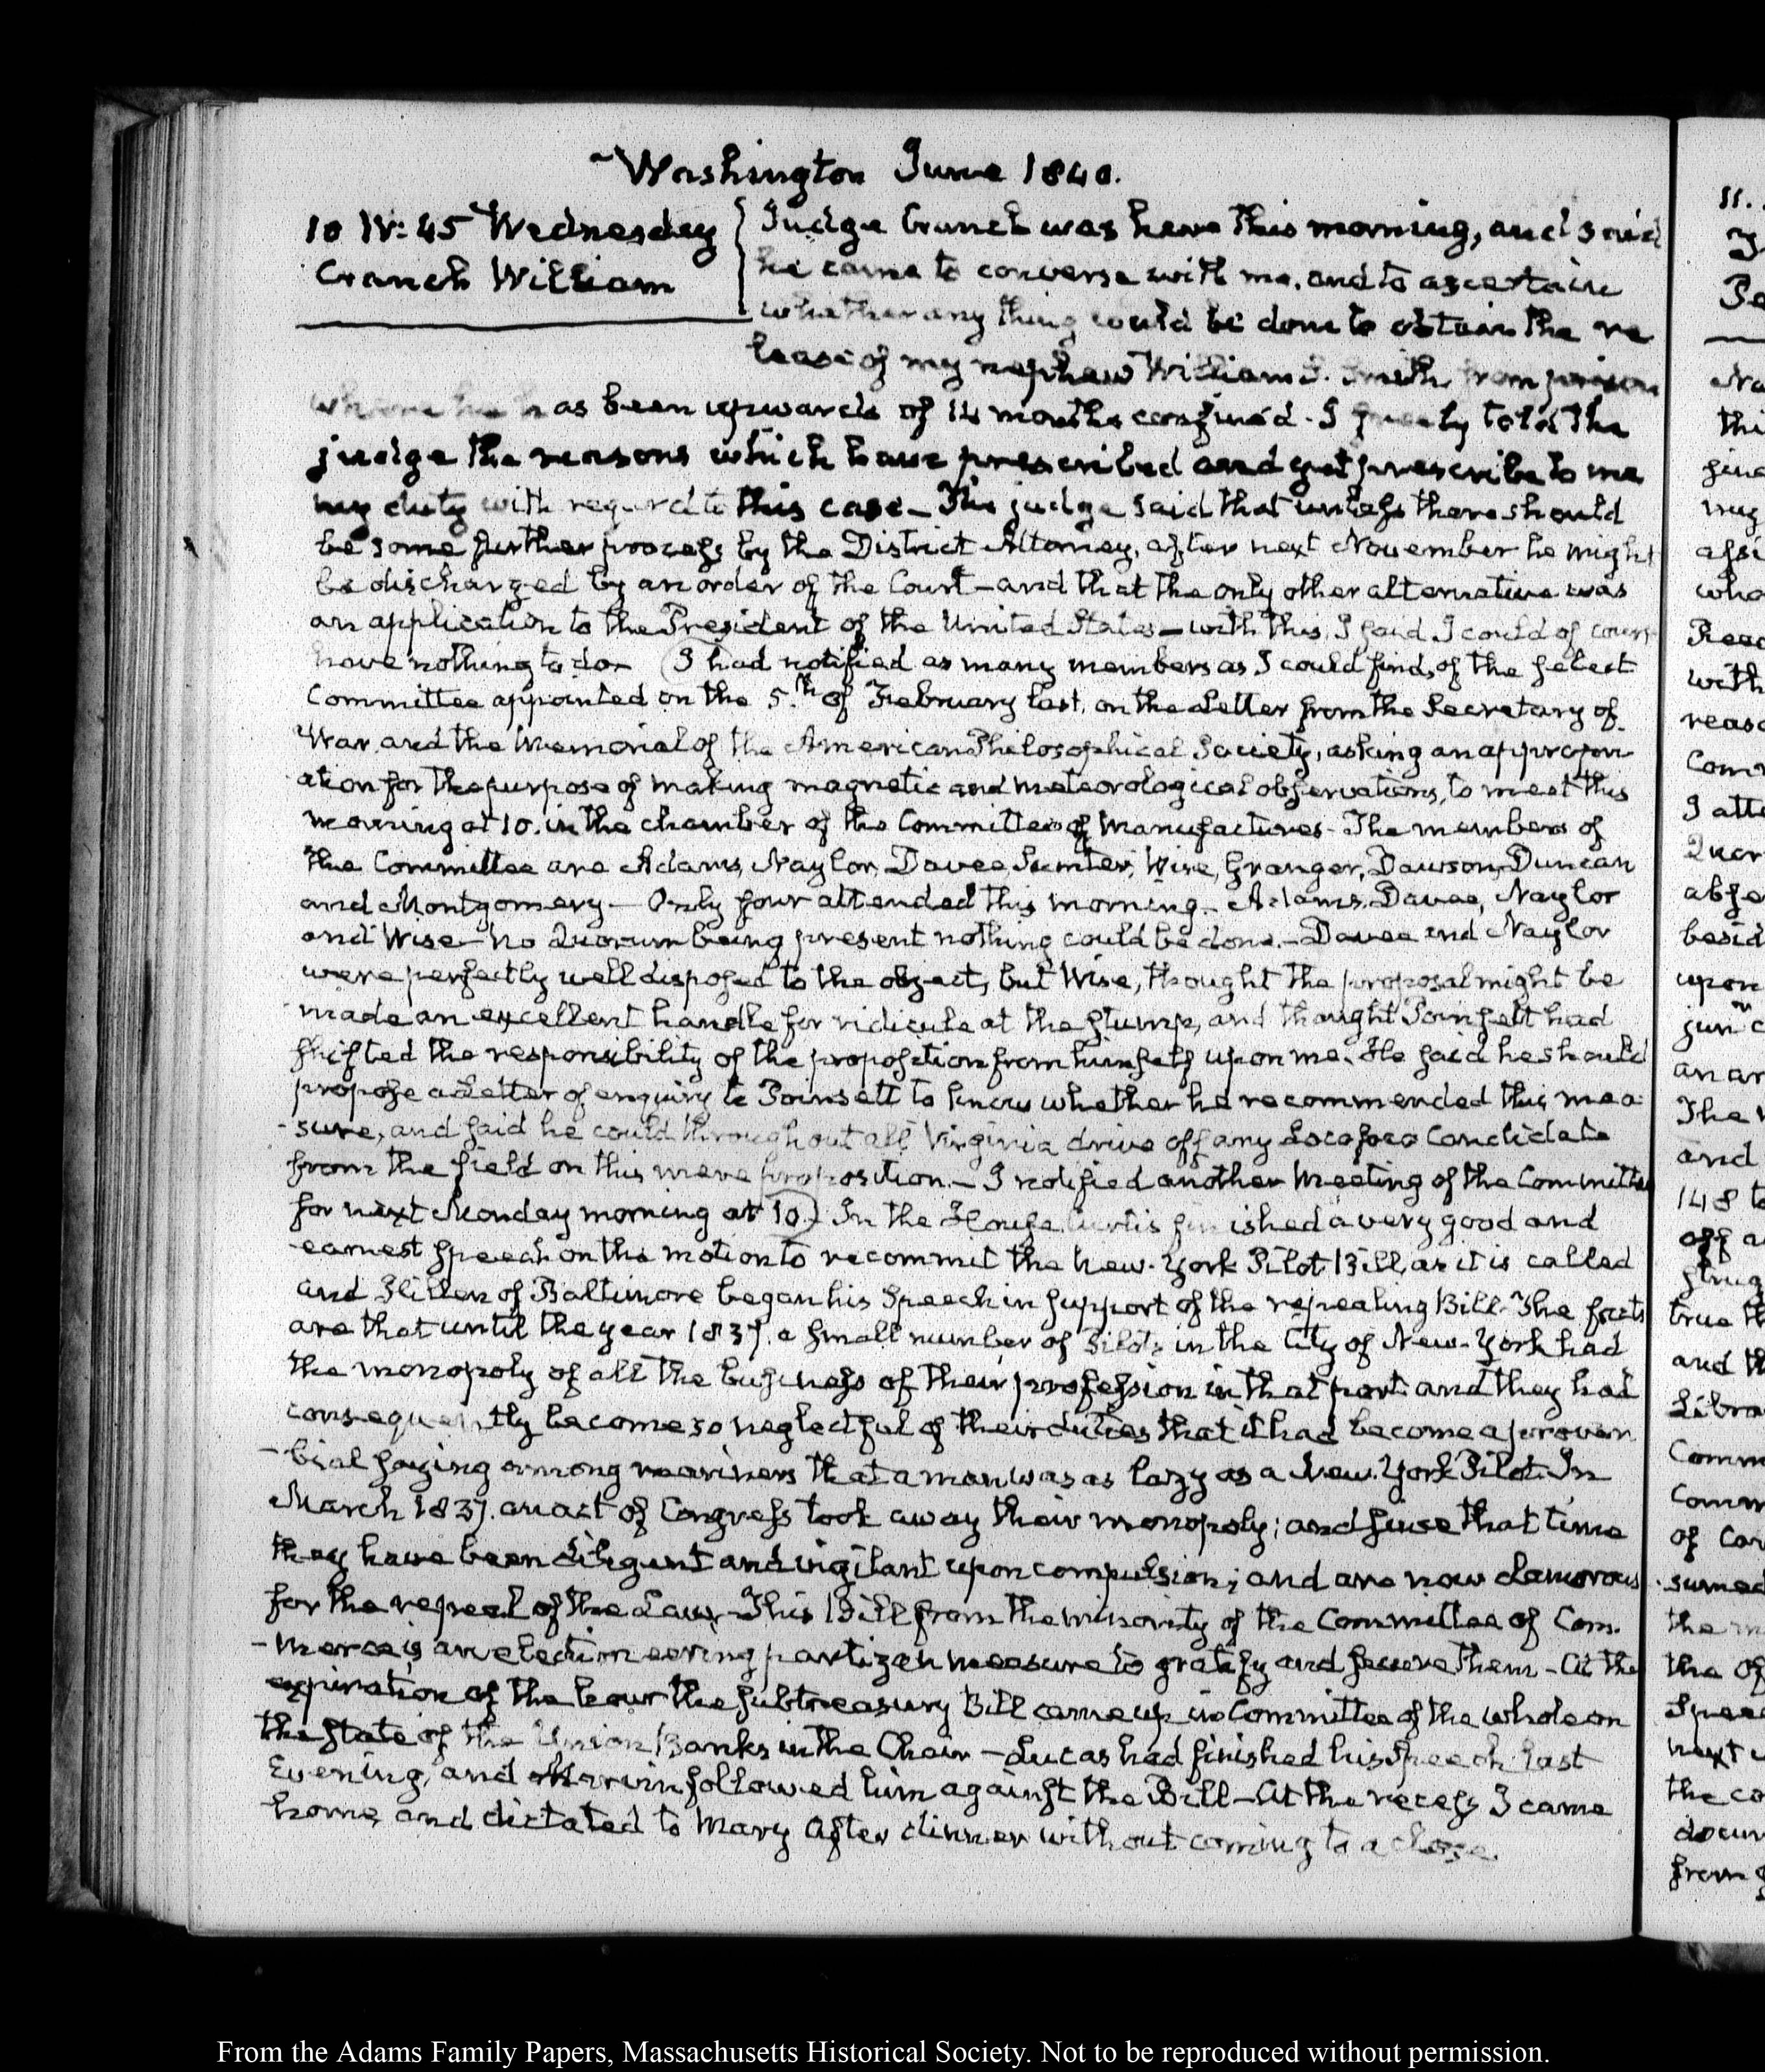 Washington June 1840.
10 IV: 45 Wednesday
Cranch William
Judge Cranch was here this morning, and said
he came to converse with me, and to ascertain
whether any thing could be done to obtain the re
lease of my nephew William S. Smith from prison
where he has been upwards of 14 months confined. I freely told the
judge the reasons which have prescribed and yet prescribe to me
my duty with regard to this case_ The judge said that unless there should
be some further process by the District Attorney, after next November he might
be discharged by an order of the Court_and that the only other alternative was
an application to the President of the United States_with this, I said I could of course
have nothing to do_ (I had notified as many members as I could find, of the select
Committee appointed on the 5.th of February last, on the Letter from the Secretary of
War, and the Memorial of the American Philosophical Society, asking an appropri
ation for the purpose of making magnetic and meteorological observations, to meet this
morning at 10. in the chamber of the Committee of Manufactures- The members of
the Committee are Adams, Naylor, Davee Sumter, Wise, Granger, Dawson, Duncan
and Montgomery_ Only four attended this morning_ Adams, Davee, Naylor
and Wise_ No Quorum being present nothing could be done._ Davee and Naylor
were perfectly well disposed to the object, but Wise, thought the proposal might be
made an excellent handle for ridicule at the stump, and thought Poinsett had
shifted the responsibility of the proposition from himself upon me. He said he should
propose a Letter of enquiry to Poinsett to know whether he recommended this mea
-sure, and said he could throughout all Virginia drive off any Locofoco Candidate
from the field on this mere proposition._ I notified another Meeting of the Committee
for next Monday morning at 10.) In the House Curtis finished a very good and
earnest speech on the motion to recommit the New-York Pilot Bill, as it is called
and Hillen of Baltimore began his Speech in support of the repealing Bill. The facts
are that until the year 1837. a small number of Pilots in the City of New-York had
the monopoly of all the business of their profession in that port and they had
consequently become so neglectful of their duties that it had become a prover
-bial saying among mariners that a man was as lazy as a New-York Pilot. In
March 1837. an act of Congress took away their monopoly; and since that time
they have been diligent and vigilant upon compulsion; and are now clamorous
for the repeal of the Law_ This Bill from the minority of the Committee of Com.
-merce is an electioneering partizan measure to gratify and secure them_ At the
expiration of the hour the subtreasury Bill came up in Committee of the whole on
the state of the Union Banks in the Chair_ Lucas had finished his Speech last
Evening, and Marvin followed him against the Bill_ At the recess I came
home, and dictated to Mary after dinner without coming to a close.
11.
Pe
thi
give
assi
who
Reed
with
reaso
Com
I atte
Quor
abse
besid
upon
jun
an ar
The
and
148 to
off a
strug
true th
and th
Libra
Comm
Comm
of Cor
sumed
the m
the of
Speec
next
the co
docum
from
From the Adams Family Papers, Massachusetts Historical Society. Not to be reproduced without permission.